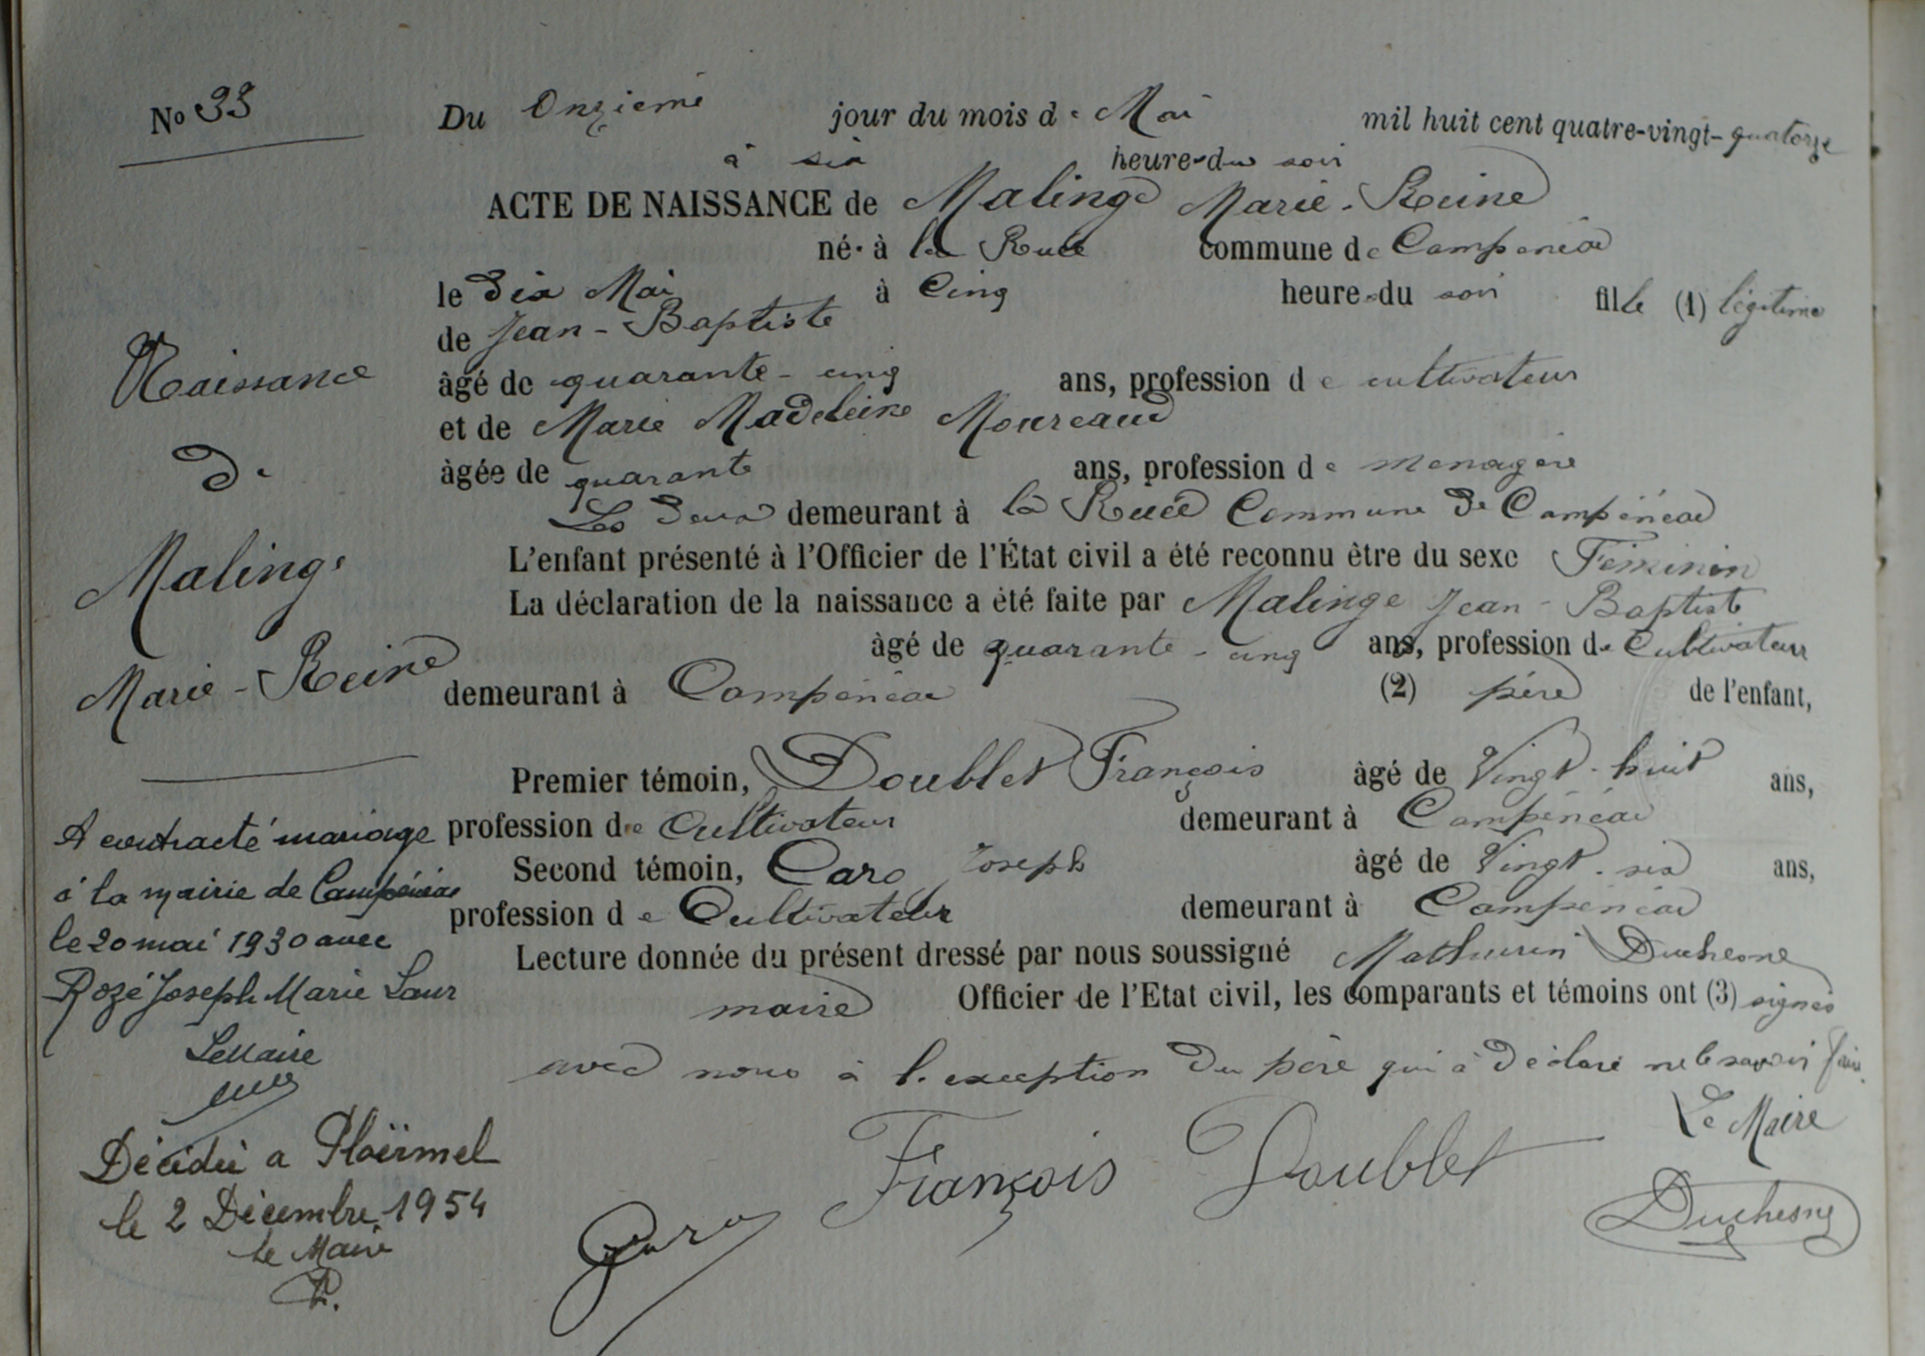 No 33
Du Onzième jour du mois de Mai mil huit cent quatre-vingt-quatorze
à six heures du soir
ACTE DE NAISSANCE de Malinge Marie-Reine
né à la Ruée commune de Campénéac
le dix Mai à Cinq heures du soir fille (1) légitime
de Jean-Baptiste
âgé de quarante-cinq ans, profession de cultivateur
et de Marie Madeleine Moureaud
âgée de quarante ans, profession de menagère
Les deux demeurant à la Ruée Commune de Campénéac
L'enfant présenté à l'Officier de l'État civil a été reconnu être du sexe Féminin
La déclaration de la naissance a été faite par Malinge Jean-Baptiste
âgé de quarante-cinq ans, profession de Cultivateur
demeurant à Campénéac (2) père de l'enfant,
Premier témoin, Doublet François âgé de Vingt-huit ans,
profession de Cultivateur demeurant à Campénéac
Second témoin, Caro Joseph âgé de Vingt-six ans,
profession de Cultivateur demeurant à Campénéac
Lecture donnée du présent dressé par nous soussigné Mathurin Duchesne
maire Officier de l'Etat civil, les comparants et témoins ont (3) signés
avec nous à l'exception du père qui a déclaré ne le savoir faire.
Le Maire
François Doublet
Duchesne
Caro
Naissance
de
Malinge
Marie-Reine
A contracté mariage
à la mairie de Campénéac
le 20 mai 1930 avec
Rozé Joseph Marie Laur
Le Maire
Décidée a Ploërmel
le 2 Décembre 1954
Le Maire